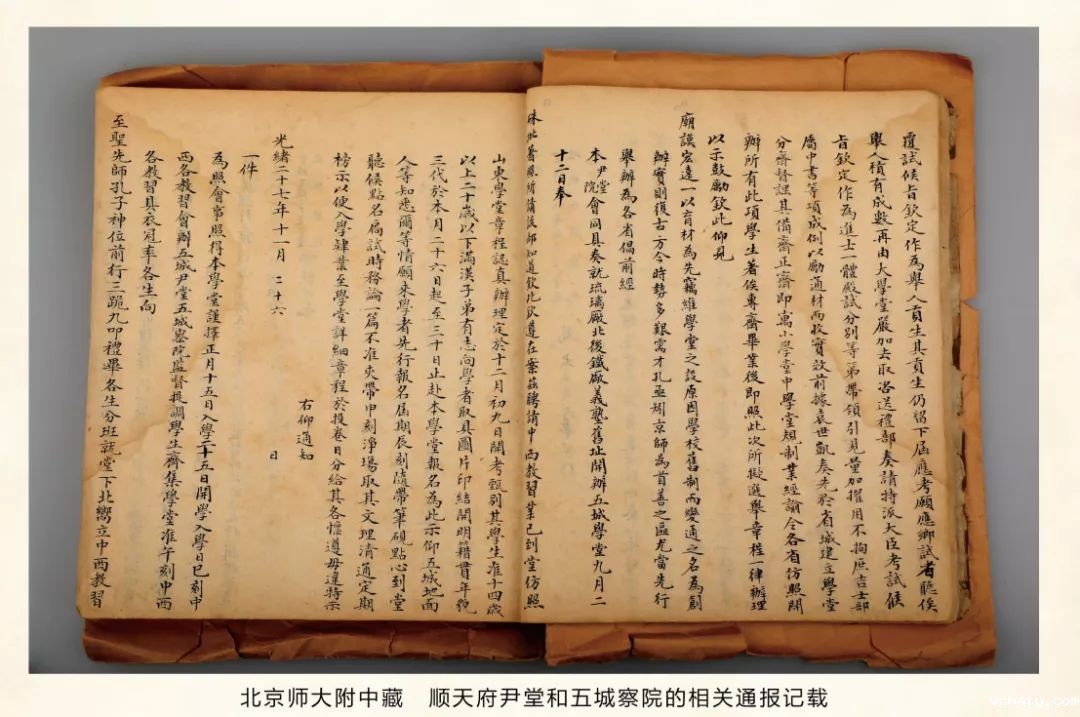 覆試候旨欽定作為舉人貢生其貢生仍留下屆應考願應鄉試者聽俟
舉人積有成數再由大學堂嚴加去取咨送禮部奏請特派大臣考試候
旨欽定作為進士一體殿試分別等第帶領引見量加擢用不拘庶吉士部
屬中書等項成例以勵通材而收實效前據袁世凱奏先於省城建立學堂
分齋督課其備齋正齋即寓小學堂中學堂規制業經諭令各省仿照開
辦所有此項學生著俟專齋畢業後即照此次所擬選舉章程一律辦理
以示鼓勵欽此仰見
廟謨宏遠一以育材為先竊維學堂之設原因學校舊制而變通之名為創
辦實則復古方今時勢多艱需才孔亟矧京師為首善之區尤當先行
舉辦為各省倡前經
本尹堂院會同具奏就琉璃廠北後鐵廠義塾舊址開辦五城學堂九月二
十二日奉
硃批著即欽此欽遵在案茲聘請中西教習業已到堂仿照
山東學堂章程認真辦理定於十二月初九日開考甄別其學生准十四歲
以上二十歲以下滿漢子弟有志向學者取具圖片印結開明籍貫年貌
三代於本月二十六日起至三十日止赴本學堂報名為此示仰五城地面
人等知悉爾等情願來學者先行報名屆期辰刻隨帶筆硯點心到堂
聽候點名扃試時務論一篇不准夾帶申刻淨場取其文理清通定期
榜示以便入學肄業至學堂詳細章程於投卷日分給其各懍遵毋違特示
右仰通知
光緒二十七年十一月二十六日
一件
為照會事照得本學堂謹擇正月十五日入學二十五日開學入學日已刻中
西各教習會辦五城尹堂五城察院監督提調學生齊集學堂准午刻中西
各教習具衣冠率各生向
至聖先師孔子神位前行三跪九叩禮畢各生分班就堂下北嚮立中西教習
北京师大附中藏 顺天府尹堂和五城察院的相关通报记载
vchatu.com